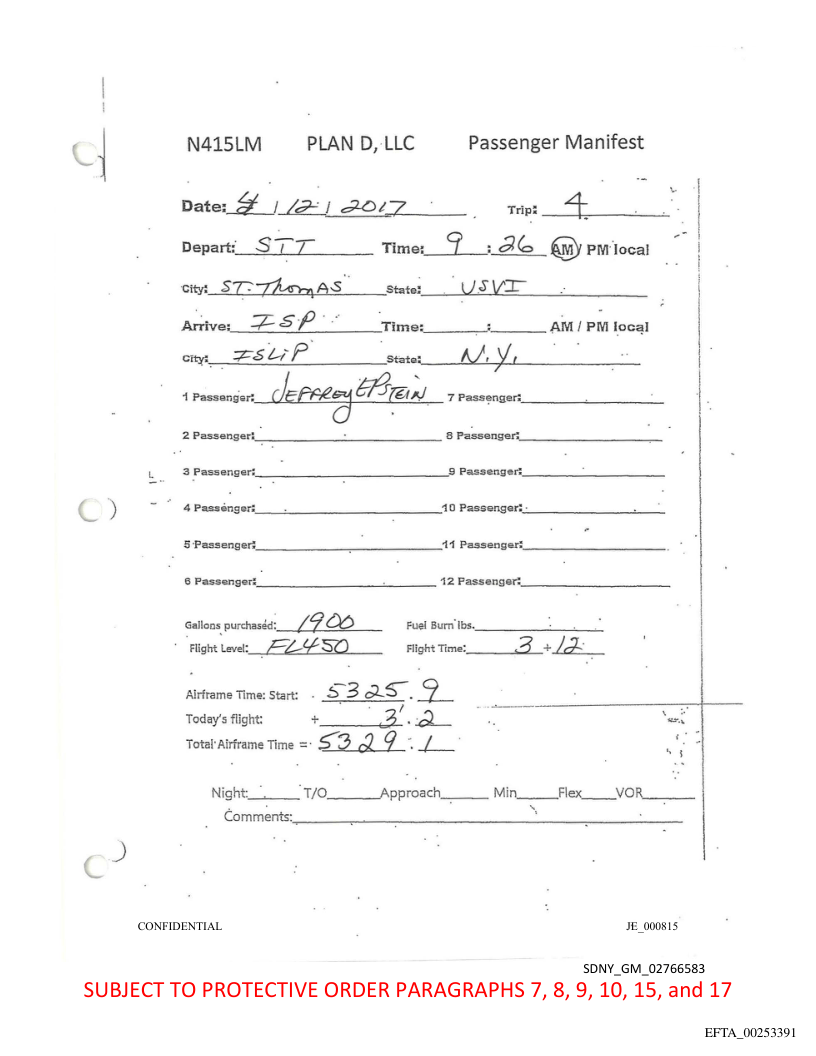 N415LM PLAN D, LLC Passenger Manifest
Date: 4 / 12 / 2017 Trip: 4
Depart: STT Time: 9 : 26 AM / PM local
City: ST. THOMAS State: USVI
Arrive: ISP Time: : AM / PM local
City: ISLIP State: N.Y.
1 Passenger: JEFFREY EPSTEIN 7 Passenger:
2 Passenger: 8 Passenger:
3 Passenger: 9 Passenger:
4 Passenger: 10 Passenger:
5 Passenger: 11 Passenger:
6 Passenger: 12 Passenger:
Gallons purchased: 1900 Fuel Burn lbs.
Flight Level: FL450 Flight Time: 3 + 12
Airframe Time: Start: 5325.9
Today's flight: + 3.2
Total Airframe Time = 5329.1
Night: T/O Approach Min Flex VOR
Comments:
CONFIDENTIAL JE_000815
SDNY_GM_02766583
SUBJECT TO PROTECTIVE ORDER PARAGRAPHS 7, 8, 9, 10, 15, and 17
EFTA_00253391